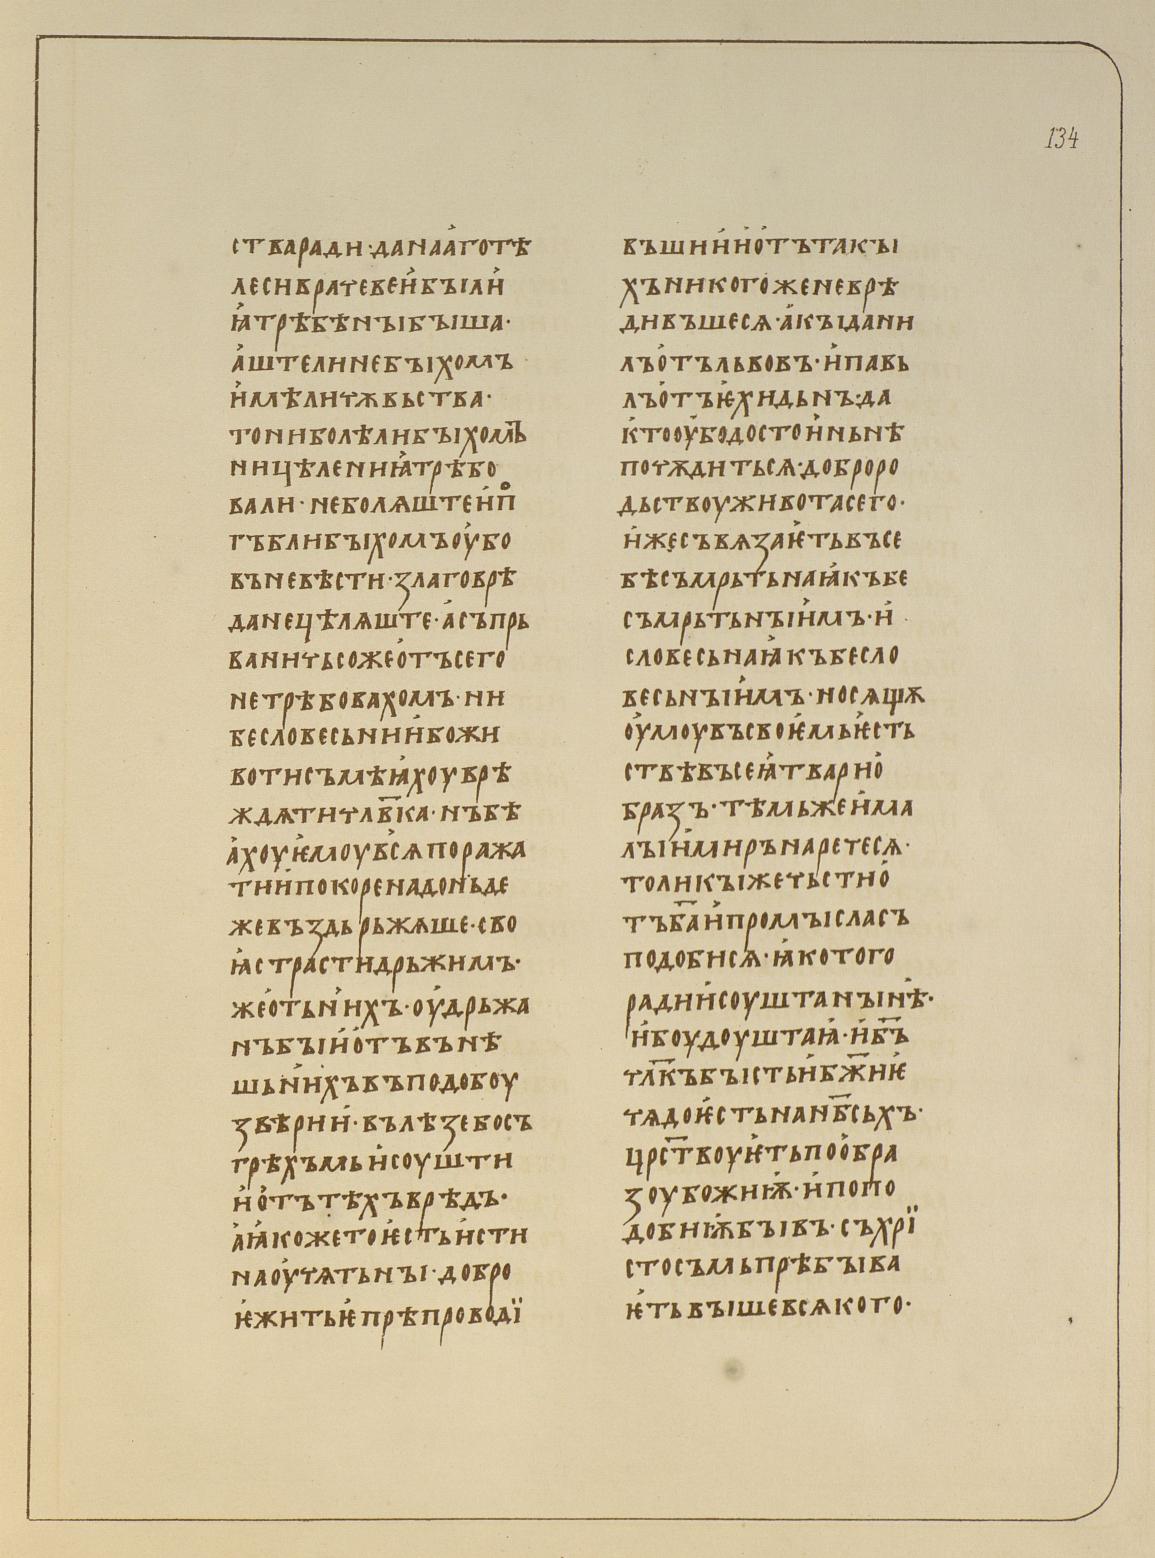 134
стваради·данаа́готѣ
лесиврачевеи́бꙑли́
ꙗ́трѣбѣнꙑбꙑша·
а́штелинебꙑхомъ
и́мѣличѫвьства·
тониболѣлибꙑхомъ
ницѣлениꙗ́трѣбо
вали·неболѧштеи́п
гъблибꙑхомъоу́бо
въневѣсти·злаговрѣ
данецѣлѧште·а́съпрь
ваничьсожео́тъсего
нетрѣбовахомъ·ни
бесловесьнии́божи
вотисъмѣꙗ́хоуврѣ
ждѧтичл҃вка·нъбѣ
а́хоуѥ́моувьсѧпоража
тии́покоренадоньде
жевъздьрьжѧше·сво
ꙗ́страстидрьжимъ·
жео́тьни́хъ·оу́дрьжа
нъбꙑи́о́тъвънѣ
шьни́хъвъподобоу
звѣрии́·вълѣзебосъ
грѣхъмьи́соушти
и́о́тътѣхъврѣдъ·
а́ꙗ́кожетоѥ́стьи́сти
наоу́чѧтьнꙑ·добро
ѥ́житьѥ́прѣпроводї
въшии́и́о́тътакꙑ
хъникогоженеврѣ
дивъшесѧ·а́кꙑдани
лъо́тъльвовъ·и́павь
лъо́тъѥ́хидьнъ:да
ќтооу́бодостои́ньнѣ
почѫдитьсѧ·доброро
дьствоуживотасего·
и́жесъвѧзаѥ́тьвъсе
бѣсъмрьтьнаꙗ́къбе
съмрьтьнꙑи́мъ·и́
словесьнаꙗ́къбесло
весьнꙑи́мъ·носѧщѫ
оу́моувъсвоѥ́мьѥ́сть
ствѣвъсеꙗ́тварио́
бразъ·тѣмьжеи́ма
лꙑи́мирънаречесѧ·
толикꙑжечьстио́
тъб҃аи́промꙑсласъ
подобисѧ·ꙗ́котого
радии́соуштанꙑнѣ·
и́боудоуштаꙗ́·и́б҃ъ
чл҃къбꙑстьи́б҃жиѥ́
чѧдоѥ́стьнанб҃сьхъ·
црс҃твоуѥ́тьпоо́бра
зоубожиѭ́·и́попо
добиѭ́бꙑвъ·съхрї
стосъмьпрѣбꙑва
ѥ́тьвꙑшевсѧкого·